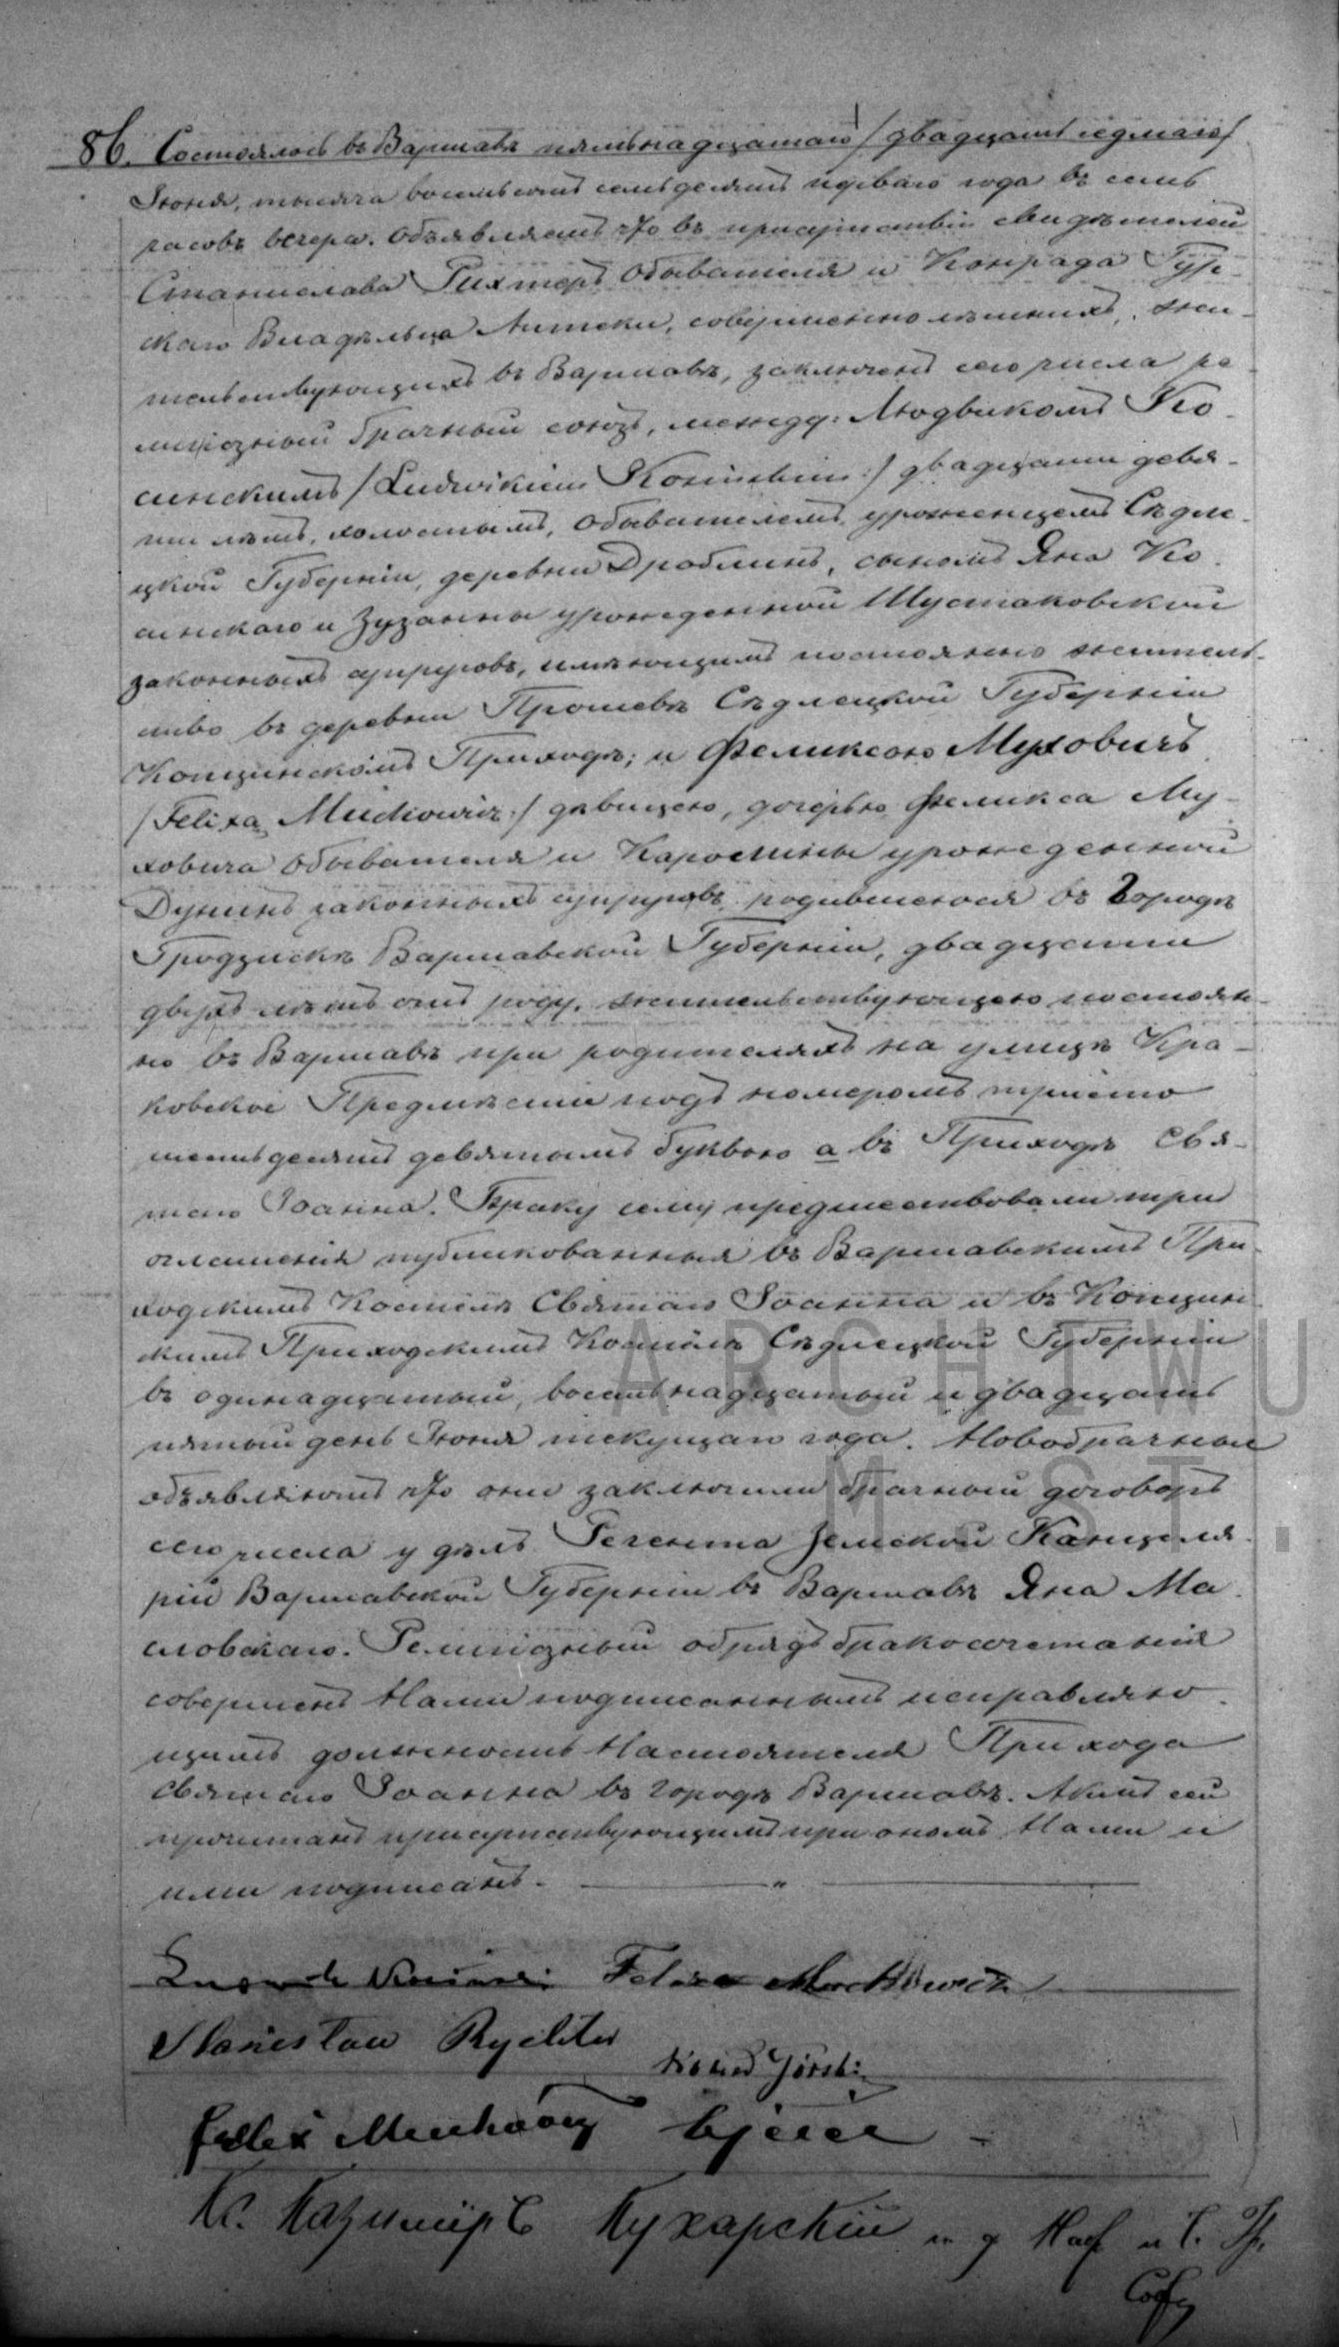 86. Состоялось въ Варшавѣ пятьнадцатаго /двадцать седмаго/
Іюня, тысяча восемьсотъ семьдесятъ перваго года въ семь
часовъ вечера. Объявляемъ что въ присутствіи свидѣтелей
Станислава Рихтеръ Обывателя и Конрада Гур-
скаго Владѣльца Аптеки, совершеннолѣтнихъ, жи-
тельствующихъ въ Варшавѣ, заключенъ сего числа ре-
лигіозный брачный союзъ, между: Людвикомъ Ко-
синскимъ /Ludwikiem Kosińskim:/ двадцати девя-
ти лѣтъ, холостымъ, Обывателемъ, уроженцемъ Сѣдле-
цкой Губерніи, деревни Дроблинъ, сыномъ Яна Ко-
синскаго и Зузанны урожденной Шустаковской
законныхъ супруговъ, имѣющимъ постоянно жительс-
тво въ деревни Прошевѣ Сѣдлецкой Губерніи
Приходѣ; и Феликсою Муховичъ
/Felixa Muchowicz:/ дѣвицею, дочерью Феликса Му-
ховича Обывателя и Каролины урожденной
Дунинъ законныхъ супруговъ, родившеюся въ Городѣ
Гродзискѣ Варшавской Губерніи, двадцати
двухъ лѣтъ отъ роду, жительствующею постоян-
но въ Варшавѣ при родителяхъ на улицѣ Кра-
ковское Предмѣстіе подъ номеромъ триста
девятымъ буквою а въ Приходѣ Свя-
таго Іоанна. Браку сему предшествовали три
оглашенія публикованныя въ Варшавскимъ При-
ходскимъ Костелѣ Святаго Іоанна и въ
скимъ Приходскимъ Костелѣ Сѣдлецкой Губерніи
въ одинадцатый, восемьнадцатый и двадцать
пятый день Іюня текущаго года. Новобрачные
объявляютъ что они заключили брачный договоръ
сего числа у дѣлъ Регента Земской Канцеля-
ріи Варшавской Губерніи въ Варшавѣ Яна Ма-
словскаго. Религіозный обрядъ бракосочетанія
совершенъ Нами подписаннымъ исправляю-
щимъ должность Настоятеля Прихода
Святаго Іоанна въ городѣ Варшавѣ. Актъ сей
прочитанъ присутствующимъ при ономъ Нами и
ими подписанъ.
Ludwik Kosiński Felixa Muchowicz
Stanisław Rychter
Konrad Górski
Felix Muchowicz Ojciec
Кс. Казимиръ Кухарскій и д Наст
ARCHIWU
M. ST.